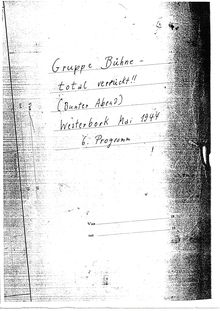 Gruppe Bühne -
total verrückt!!
(Bunter Abend)
Westerbork Mai 1944
6. Programm